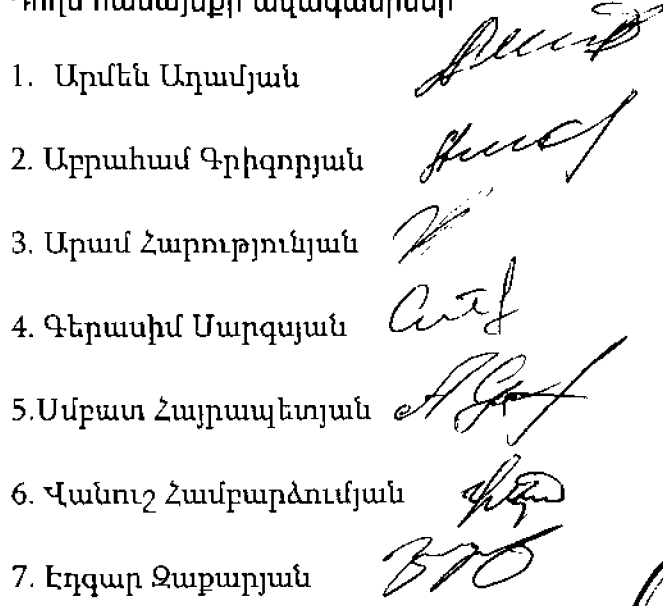 համայնքի ավագանիներ
1. Արմեն Ադամյան
2. Աբրահամ Գրիգորյան
3. Արամ Հարությունյան
4. Գերասիմ Սարգսյան
5.Սմբատ Հայրապետյան
6. Վանուշ Համբարձումյան
7. Էդգար Զաքարյան